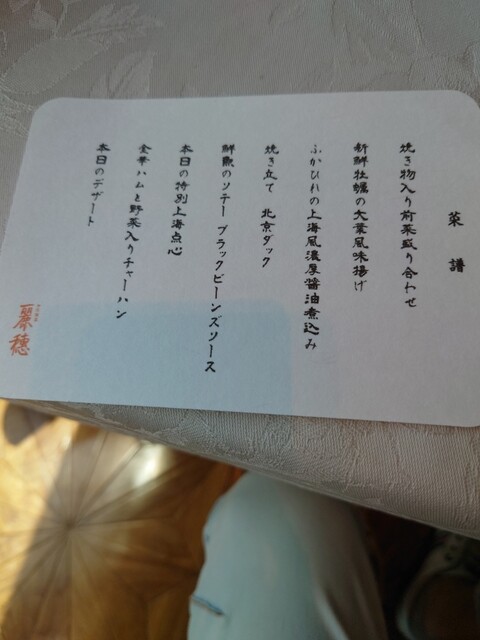 菜譜
焼き物入り前菜盛り合わせ
新鮮牡蠣の大葉風味揚げ
ふかひれの上海風濃厚醤油煮込み
焼き立て 北京ダック
鮮魚のソテー ブラックビーンズソース
本日の特別上海点心
金華ハムと野菜入りチャーハン
本日のデザート
麗穂